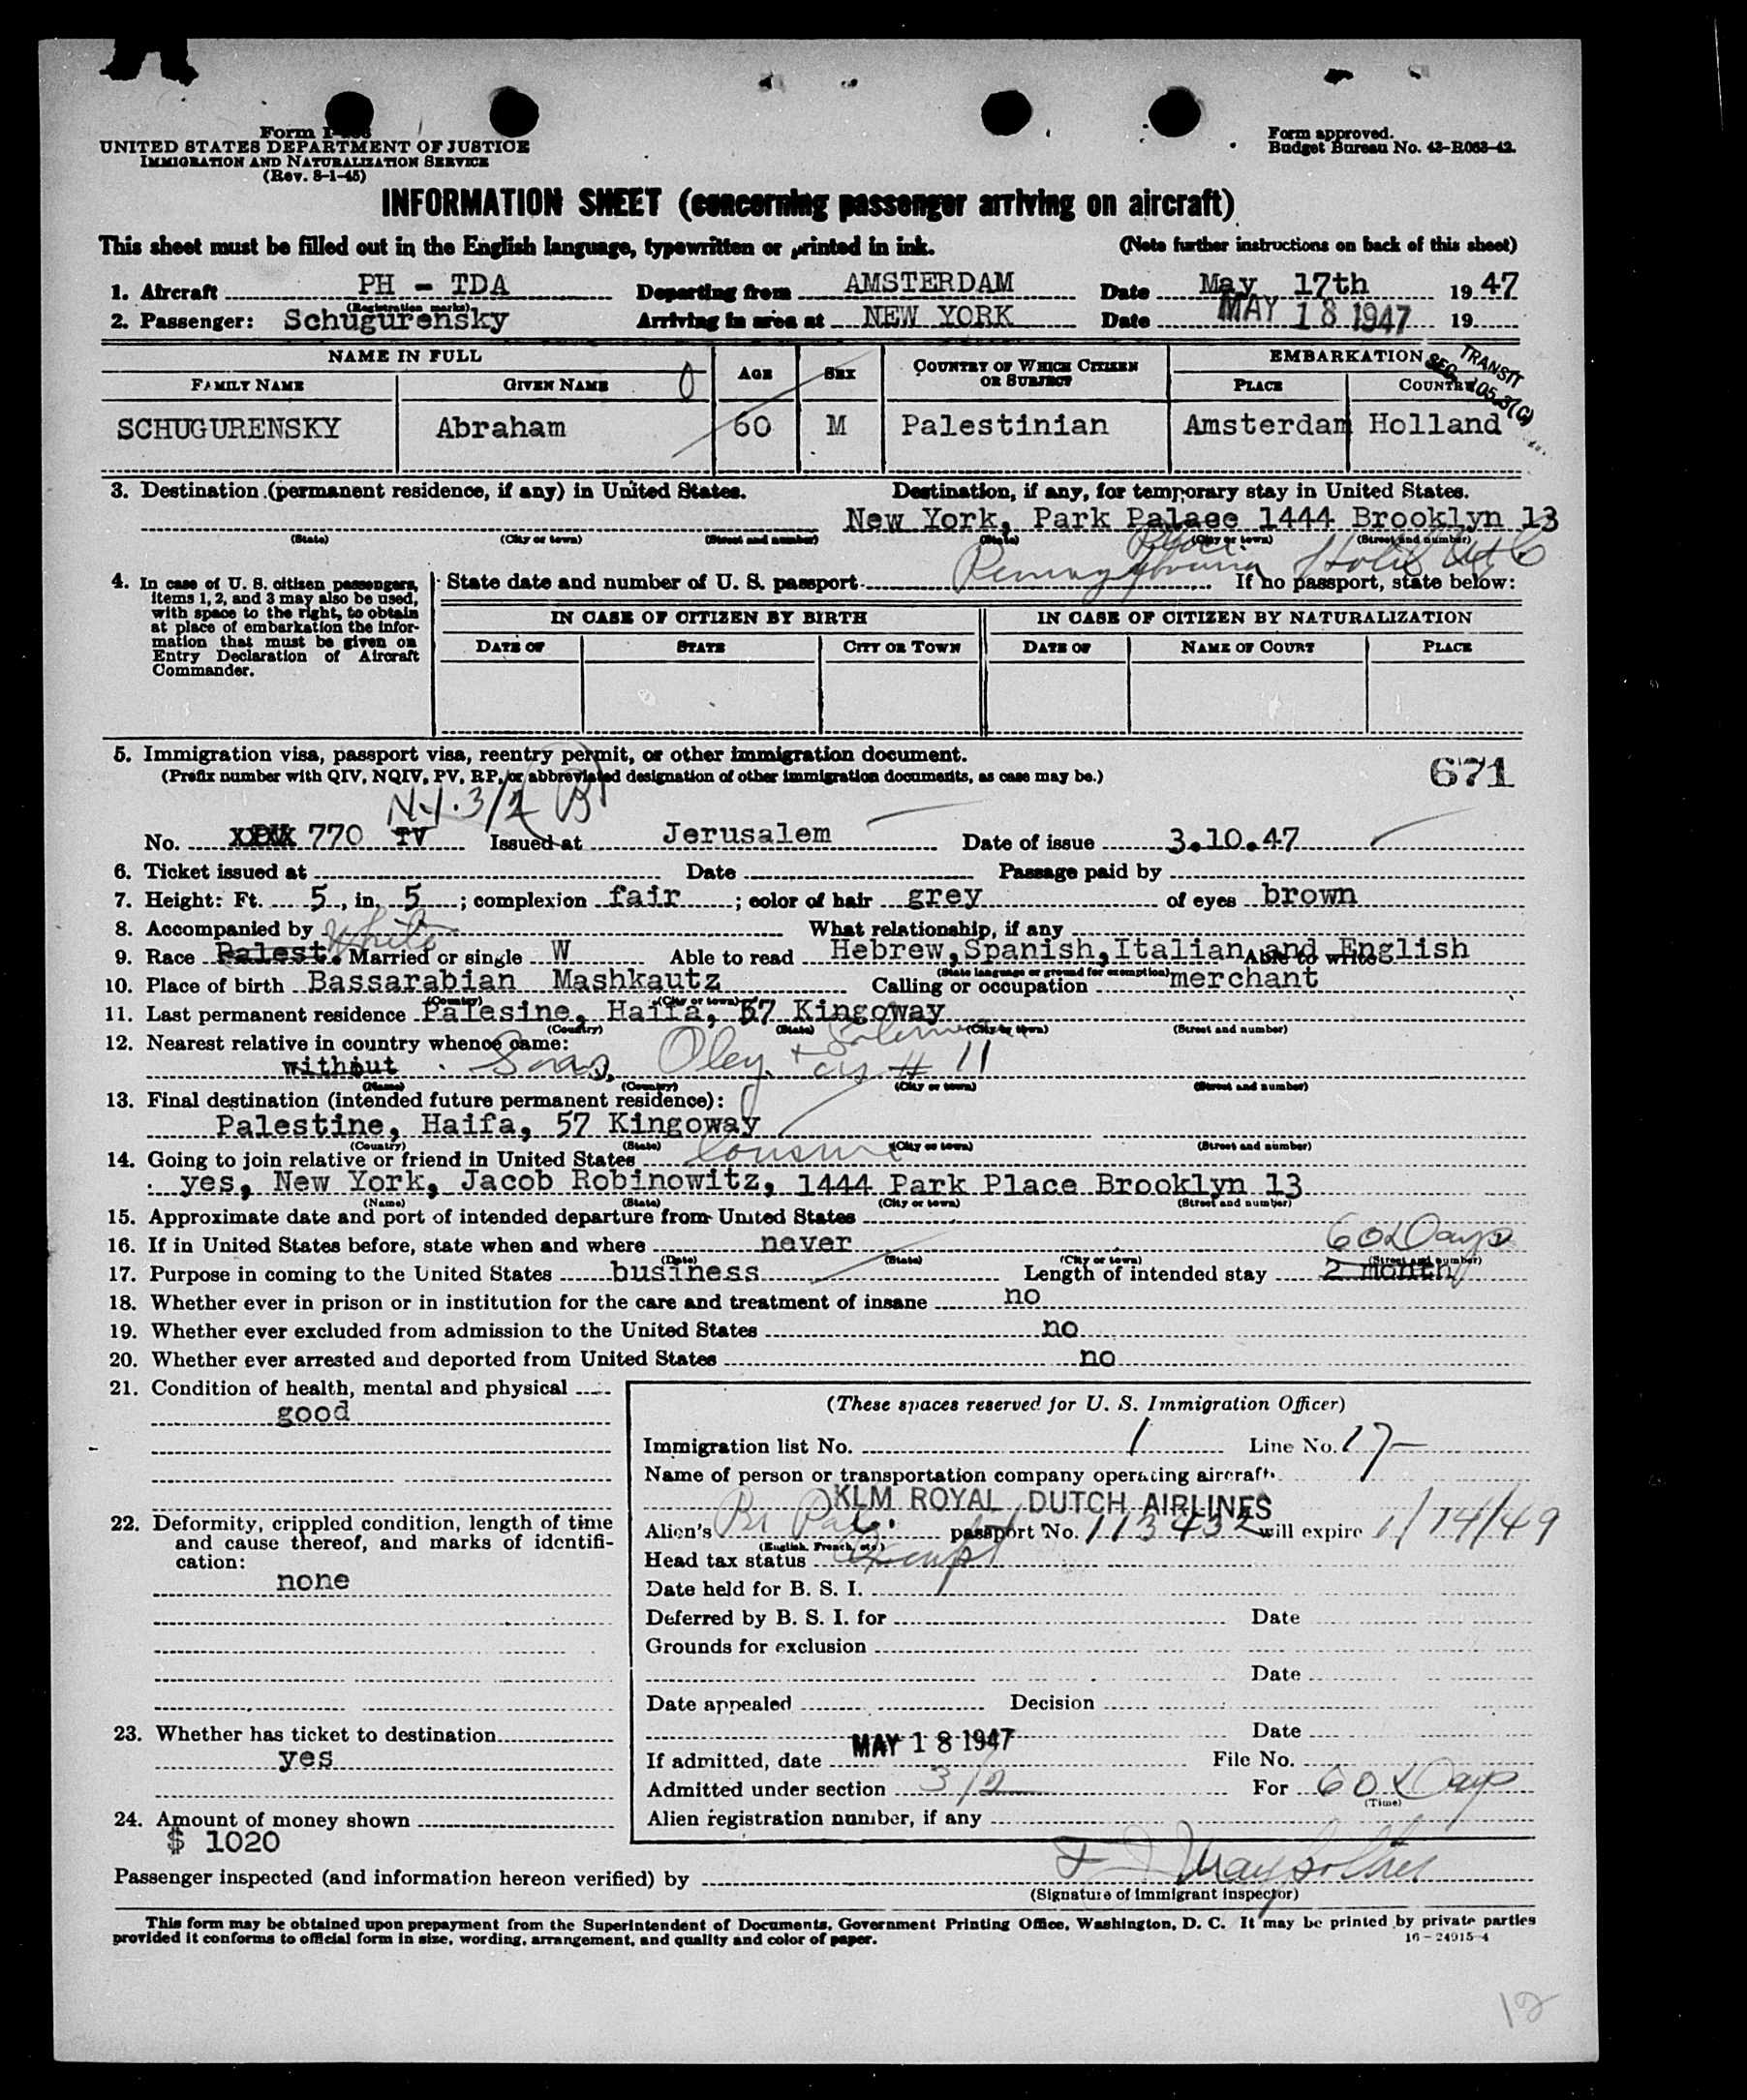 Form I-
UNITED STATES DEPARTMENT OF JUSTICE
IMMIGRATION AND NATURALIZATION SERVICE
(Rev. 8-1-45)
Form approved.
Budget Bureau No. 43-R063-42.
INFORMATION SHEET (concerning passenger arriving on aircraft)
This sheet must be filled out in the English language, typewritten or printed in ink. (Note further instructions on back of this sheet)
1. Aircraft PH - TDA Departing from AMSTERDAM Date May 17th 1947
(Registration marks)
2. Passenger: Schugurensky Arriving in area at NEW YORK Date MAY 18 1947 19
NAME IN FULL AGE SEX COUNTRY OF WHICH CITIZEN OR SUBJECT EMBARKATION
FAMILY NAME GIVEN NAME PLACE COUNTRY
TRANSIT
SEC. 105.3(G)
SCHUGURENSKY Abraham 60 M Palestinian Amsterdam Holland
3. Destination (permanent residence, if any) in United States. Destination, if any, for temporary stay in United States.
New York, Park Palace 1444 Brooklyn 13
(State) (City or town) (Street and number) (State) (City or town) (Street and number)
Place
Pennsylvania Hotel
4. In case of U. S. citizen passengers, items 1, 2, and 3 may also be used, with space to the right, to obtain at place of embarkation the information that must be given on Entry Declaration of Aircraft Commander.
State date and number of U. S. passport If no passport, state below:
IN CASE OF CITIZEN BY BIRTH IN CASE OF CITIZEN BY NATURALIZATION
DATE OF STATE CITY OR TOWN DATE OF NAME OF COURT PLACE
5. Immigration visa, passport visa, reentry permit, or other immigration document.
(Prefix number with QIV, NQIV, PV, RP, or abbreviated designation of other immigration documents, as case may be.)
671
N.I. 3/2 B
No. 770 TV Issued at Jerusalem Date of issue 3.10.47
6. Ticket issued at Date Passage paid by
7. Height: Ft. 5, in. 5; complexion fair; color of hair grey of eyes brown
8. Accompanied by What relationship, if any
White
9. Race Palest. Married or single W Able to read Hebrew, Spanish, Italian and English Able to write
(State language or ground for exemption)
10. Place of birth Bassarabian Mashkautz Calling or occupation merchant
(Country) (City or town)
11. Last permanent residence Palesine, Haifa, 57 Kingoway
(Country) (State) (City or town) (Street and number)
12. Nearest relative in country whence came:
without Oley #11
(Name) (Country) (City or town) (Street and number)
13. Final destination (intended future permanent residence):
Palestine, Haifa, 57 Kingoway
(Country) (State) (City or town) (Street and number)
14. Going to join relative or friend in United States Cousin
yes, New York, Jacob Robinowitz, 1444 Park Place Brooklyn 13
(Name) (State) (City or town) (Street and number)
15. Approximate date and port of intended departure from United States
16. If in United States before, state when and where never
(Date) (State) (City or town) (Street and number)
60 Days
17. Purpose in coming to the United States business Length of intended stay 2 month
18. Whether ever in prison or in institution for the care and treatment of insane no
19. Whether ever excluded from admission to the United States no
20. Whether ever arrested and deported from United States no
21. Condition of health, mental and physical
good
22. Deformity, crippled condition, length of time and cause thereof, and marks of identification:
none
23. Whether has ticket to destination
yes
24. Amount of money shown
$ 1020
(These spaces reserved for U. S. Immigration Officer)
Immigration list No. 1 Line No. 17
Name of person or transportation company operating aircraft
KLM ROYAL DUTCH AIRLINES
Alien's Br Pal. passport No. 113432 will expire 1/14/49
(English, French, etc.)
Head tax status exempt
Date held for B. S. I.
Deferred by B. S. I. for Date
Grounds for exclusion
Date
Date appealed Decision
Date
If admitted, date MAY 18 1947 File No.
Admitted under section 3/2 For 60 Days
(Time)
Alien registration number, if any
Passenger inspected (and information hereon verified) by
(Signature of immigrant inspector)
This form may be obtained upon prepayment from the Superintendent of Documents, Government Printing Office, Washington, D. C. It may be printed by private parties
provided it conforms to official form in size, wording, arrangement, and quality and color of paper.
16-24915-4
12